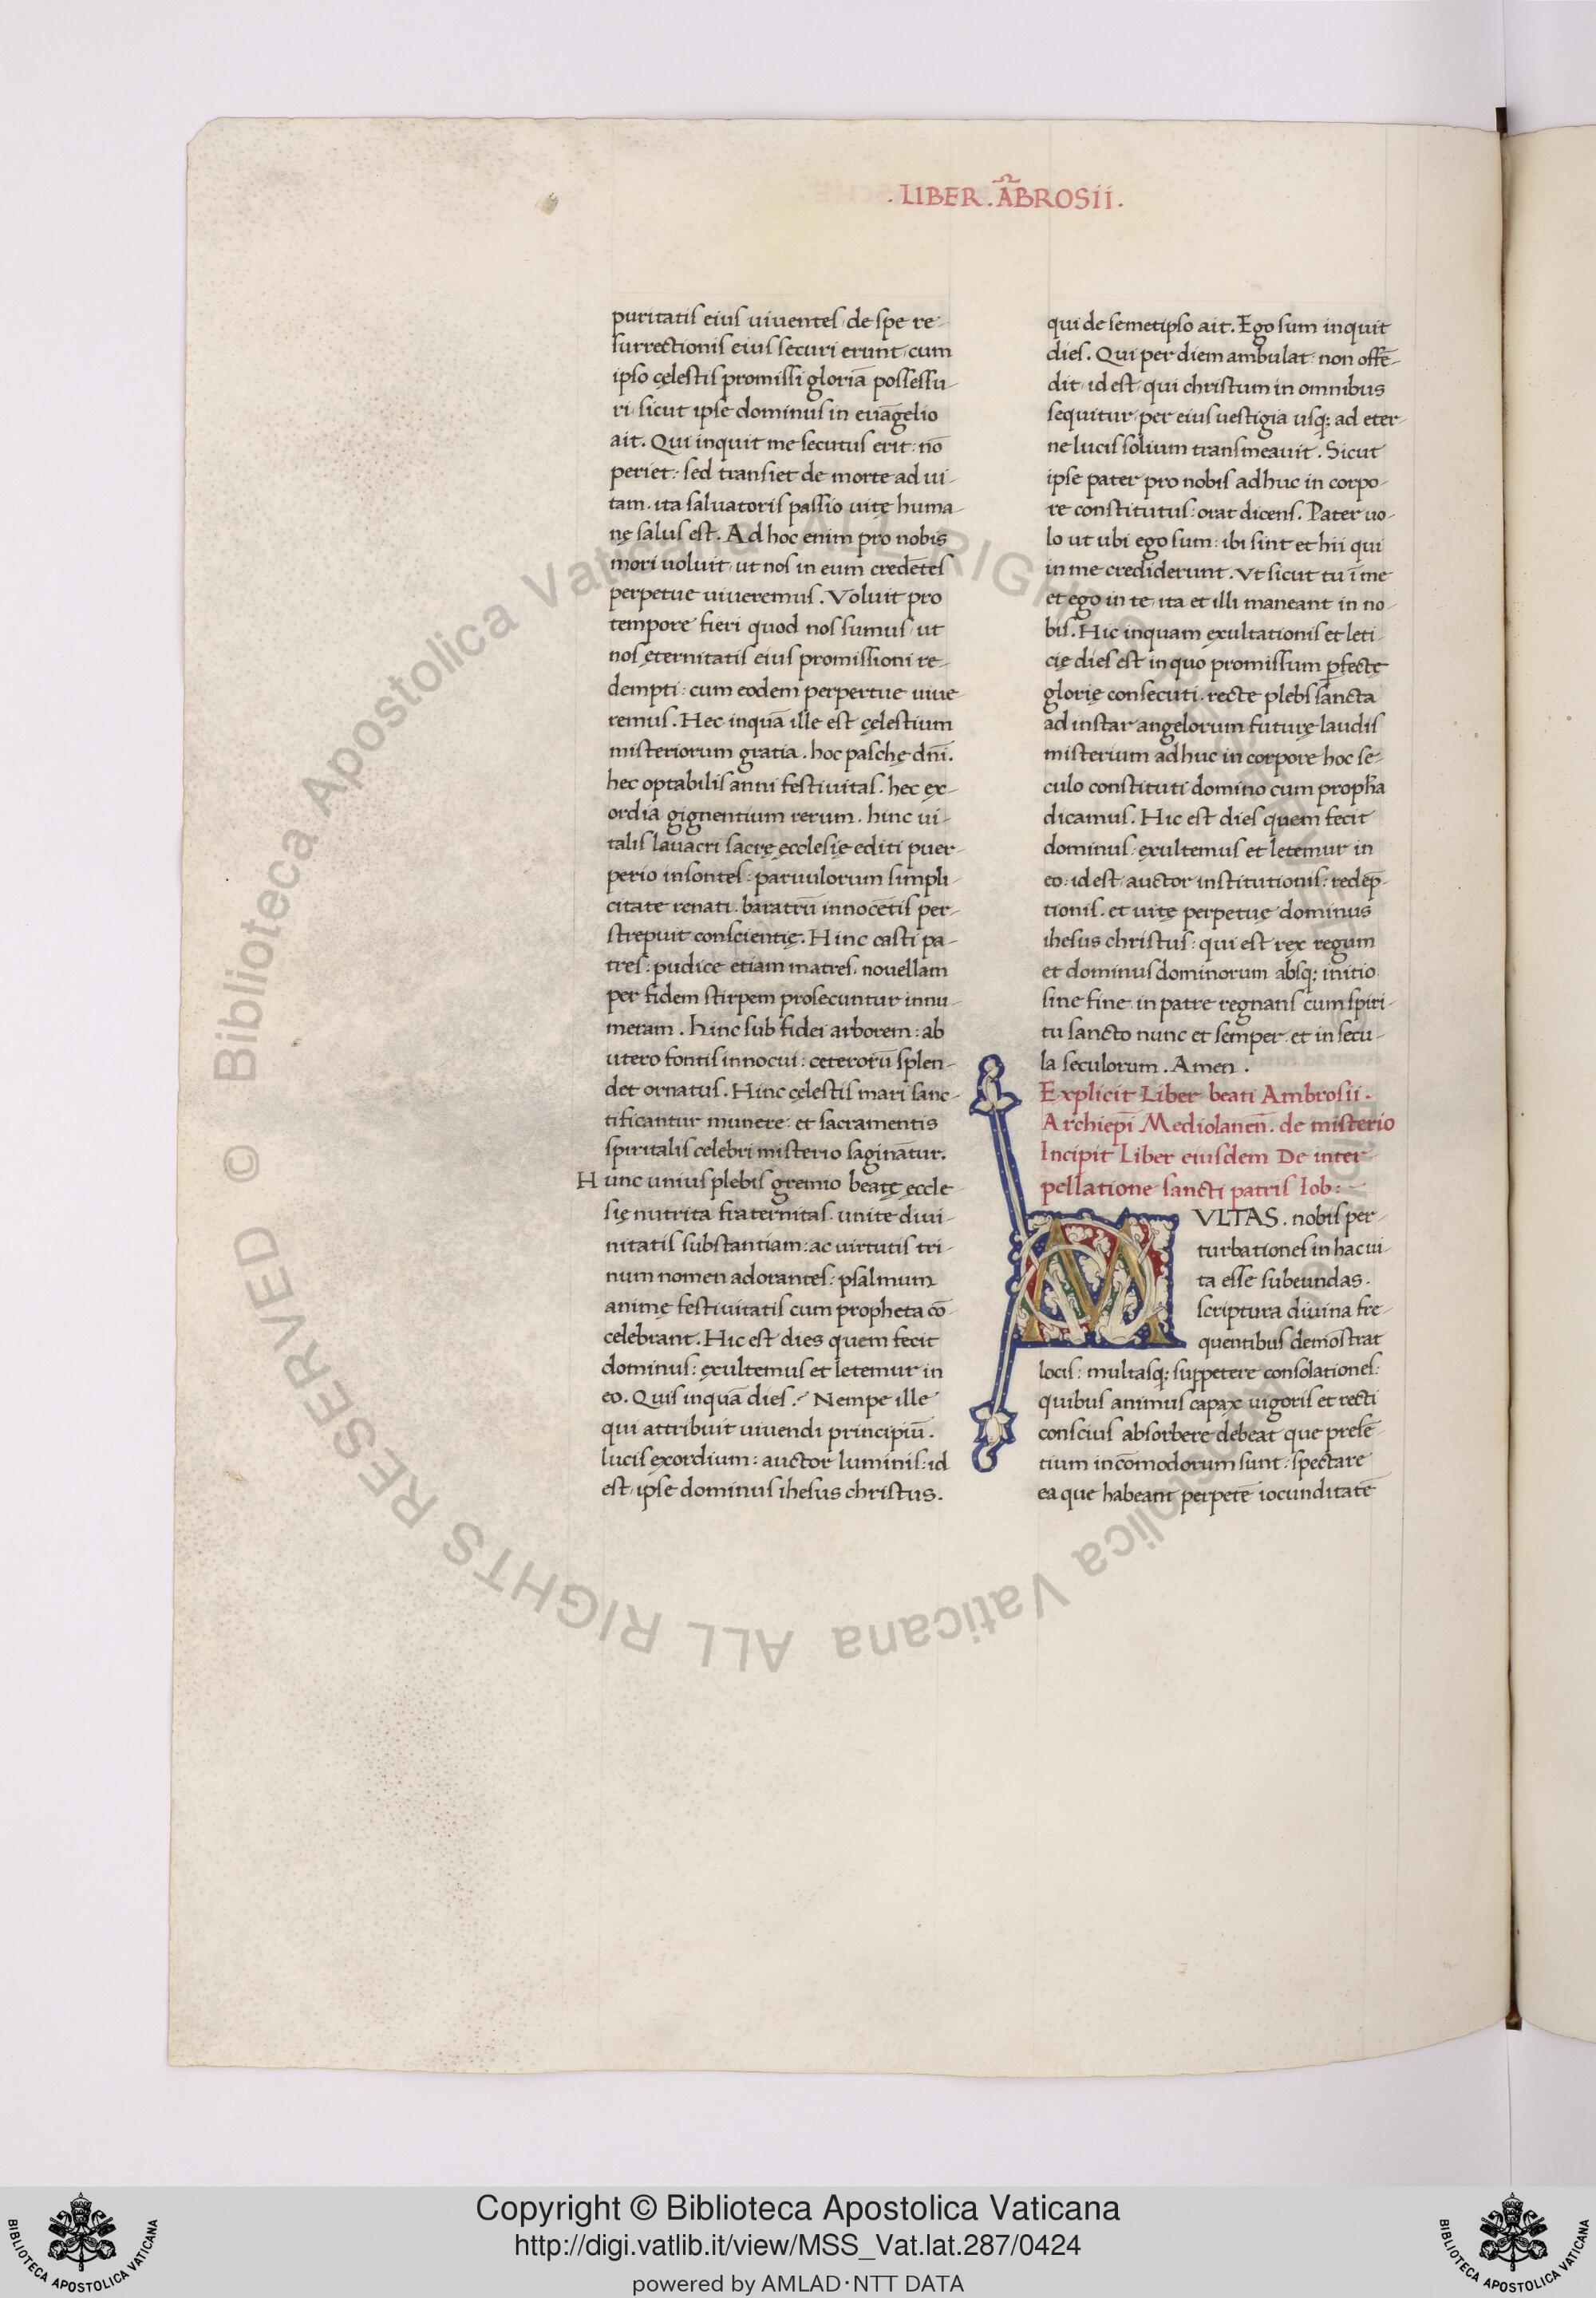 . LIBER . ĀBROSII .
puritatis eius uiuentes, de spe re-
surrectionis eius securi erunt, cum
ipso cęlestis promissi gloriā possessu-
ri, sicut ipse dominus in euāgelio
ait. Qui inquit me secutus erit: nō
periet: sed transiet de morte ad ui-
tam. ita saluatoris passio uitę huma-
nę salus est. Ad hoc enim pro nobis
mori uoluit, ut nos in eum credētes
perpetue uiueremus. Voluit pro
tempore fieri quod nos sumus, ut
nos ęternitatis eius promissioni re-
dempti: cum eodem perpertue uiue
remus. Hec inquā ille est cęlestium
misteriorum gratia. hoc paschę dn̄i.
hec optabilis anni festiuitas. hec ex-
ordia gignentium rerum. hinc ui-
talis lauacri sacrę ecclesię editi puer-
perio insontes: paruulorum simpli
citate renati. baratrū innocētis per-
strepuit conscientię. Hinc casti pa-
tres: pudice etiam matres, nouellam
per fidem stirpem prosecuntur innu-
meram. hinc sub fidei arborem: ab
utero fontis innocui: ceterorū splen-
det ornatus. Hinc cęlestis mari sanc-
tificantur munere: et sacramentis
spiritalis celebri misterio saginātur.
Hunc unius plebis gremio beatę eccle
się nutrita fraternitas. unite diui-
nitatis substantiam: ac uirtutis tri-
num nomen adorantes: psalmum
animę festiuitatis cum propheta cō-
celebrant. Hic est dies quem fecit
dominus: exultemus et letemur in
eo. Quis inquā dies? Nempe ille
qui attribuit uiuendi principiū.
lucis exordium: auctor luminis: id
est, ipse dominus ihesus christus.
qui de semetipso ait. Ego sum inquit
dies. Qui per diem ambulat: non offē-
dit, id est, qui christum in omnibus
sequitur, per eius uestigia usq; ad eter-
ne lucis solium transmeauit. Sicut
ipse pater pro nobis adhuc in corpo-
re constitutus: orat dicens. Pater uo-
lo ut ubi ego sum: ibi sint et hii qui
in me crediderunt. Vt sicut tu ī me
et ego in te, ita et illi maneant in no-
bis. Hic inquam exultationis et leti-
cię dies est in quo promissum ꝑfectę
glorię consecuti. recte plebs sancta
ad instar angelorum futurę laudis
misterium adhuc in corpore hoc se-
culo constituti domino cum propha
dicamus. Hic est dies quem fecit
dominus: exultemus et letemur in
eo: id est, auctor institutionis: redēp-
tionis. et uitę perpetuę dominus
ihesus christus: qui est rex regum
et dominus dominorum absq; initio
sine fine in patre regnans cum spiri-
tu sancto nunc et semper et in secu-
la seculorum. Amen.
Explicit Liber beati Ambrosii.
Archiepī Mediolanen̄. de misterio
Incipit Liber eiusdem De inter
pellatione sancti patris Iob:
MVLTAS. nobis per-
turbationes in hac ui-
ta esse subeundas.
scriptura diuina fre-
quentibus demōstrat
locis: multasq; suppetere consolationes:
quibus animus capax uigoris et recti
conscius absorbere debeat que presē-
tium incōmodorum sunt: spectare
ea que habeant perpetē iocunditatē
Copyright © Biblioteca Apostolica Vaticana
http://digi.vatlib.it/view/MSS_Vat.lat.287/0424
powered by AMLAD·NTT DATA
BIBLIOTECA APOSTOLICA VATICANA
BIBLIOTECA APOSTOLICA VATICANA
© Biblioteca Apostolica Vaticana ALL RIGHTS RESERVED